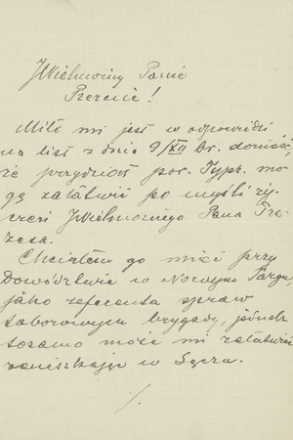 JWielmożny Panie
Prezesie!
Miło mi jest w odpowiedzi
na list z dnia 9/XII br. donieść,
że przydział por. Typr. mo-
gę załatwić po myśli ży-
czeń JWielmożnego Pana Pre-
zesa.
Chciałem go mieć przy
Dowództwie w Nowym Targu,
jako referenta spraw
taborowych brygady, jednak
tosamo może mi załatwić
mieszkając w Sączu.